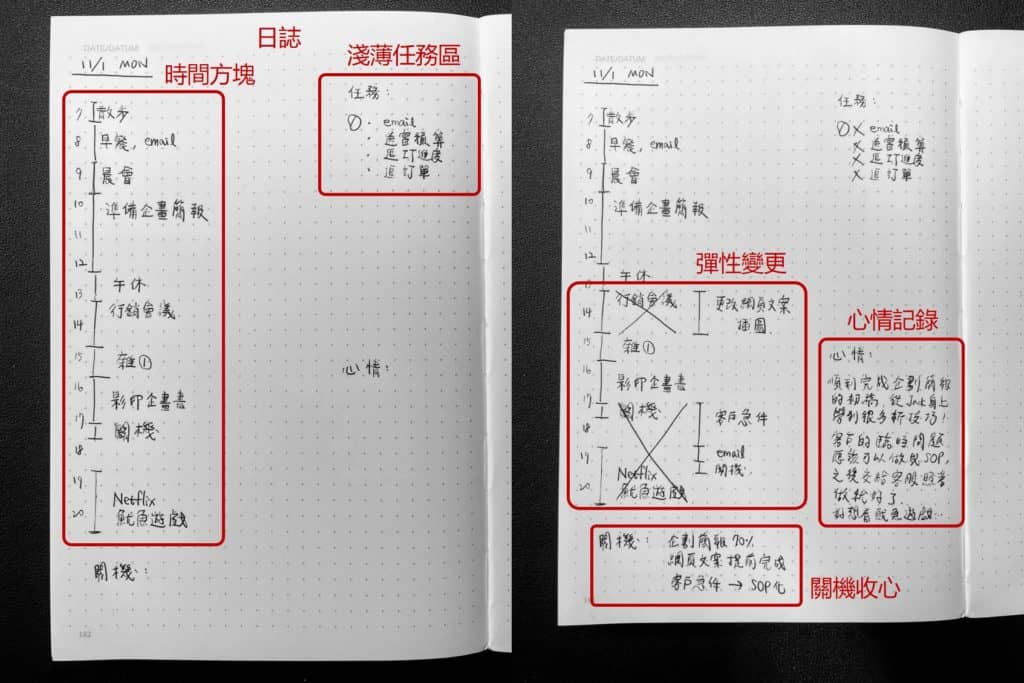 日誌
DATE/DATUM
11/1 MON
時間方塊
淺薄任務區
7 散步
8 早餐, email
9 晨會
10 準備企畫簡報
11
12
13 午休
14 行銷會議
15 雜①
16
影印企畫書
17 關機
18
19
Netflix
20 魷魚遊戲
關機:
182
任務:
① · email
· 追當積算
· 追IT進度
· 追訂單
心情:
DATE/DATUM
11/1 MON
7 散步
8 早餐, email
9 晨會
10 準備企畫簡報
11
12
13 午休
行銷會議
14
15 雜①
16 影印企畫書
17 關機
18
19
Netflix
20 魷魚遊戲
任務:
① X email
X
X 追IT進度
X 追訂單
彈性變更
更改網頁文案
插圖
客戶急件
email
關機
心情記錄
心情:
順利完成企劃簡報
的初稿,從Jack身上
學到很多新技巧!
客戶的臨時問題
應該可以做成SOP,
之後交給客服照著
做就好了
好想看魷魚遊戲…
關機: 企劃簡報70%
網頁文案提前完成
客戶急件 → SOP化
關機收心